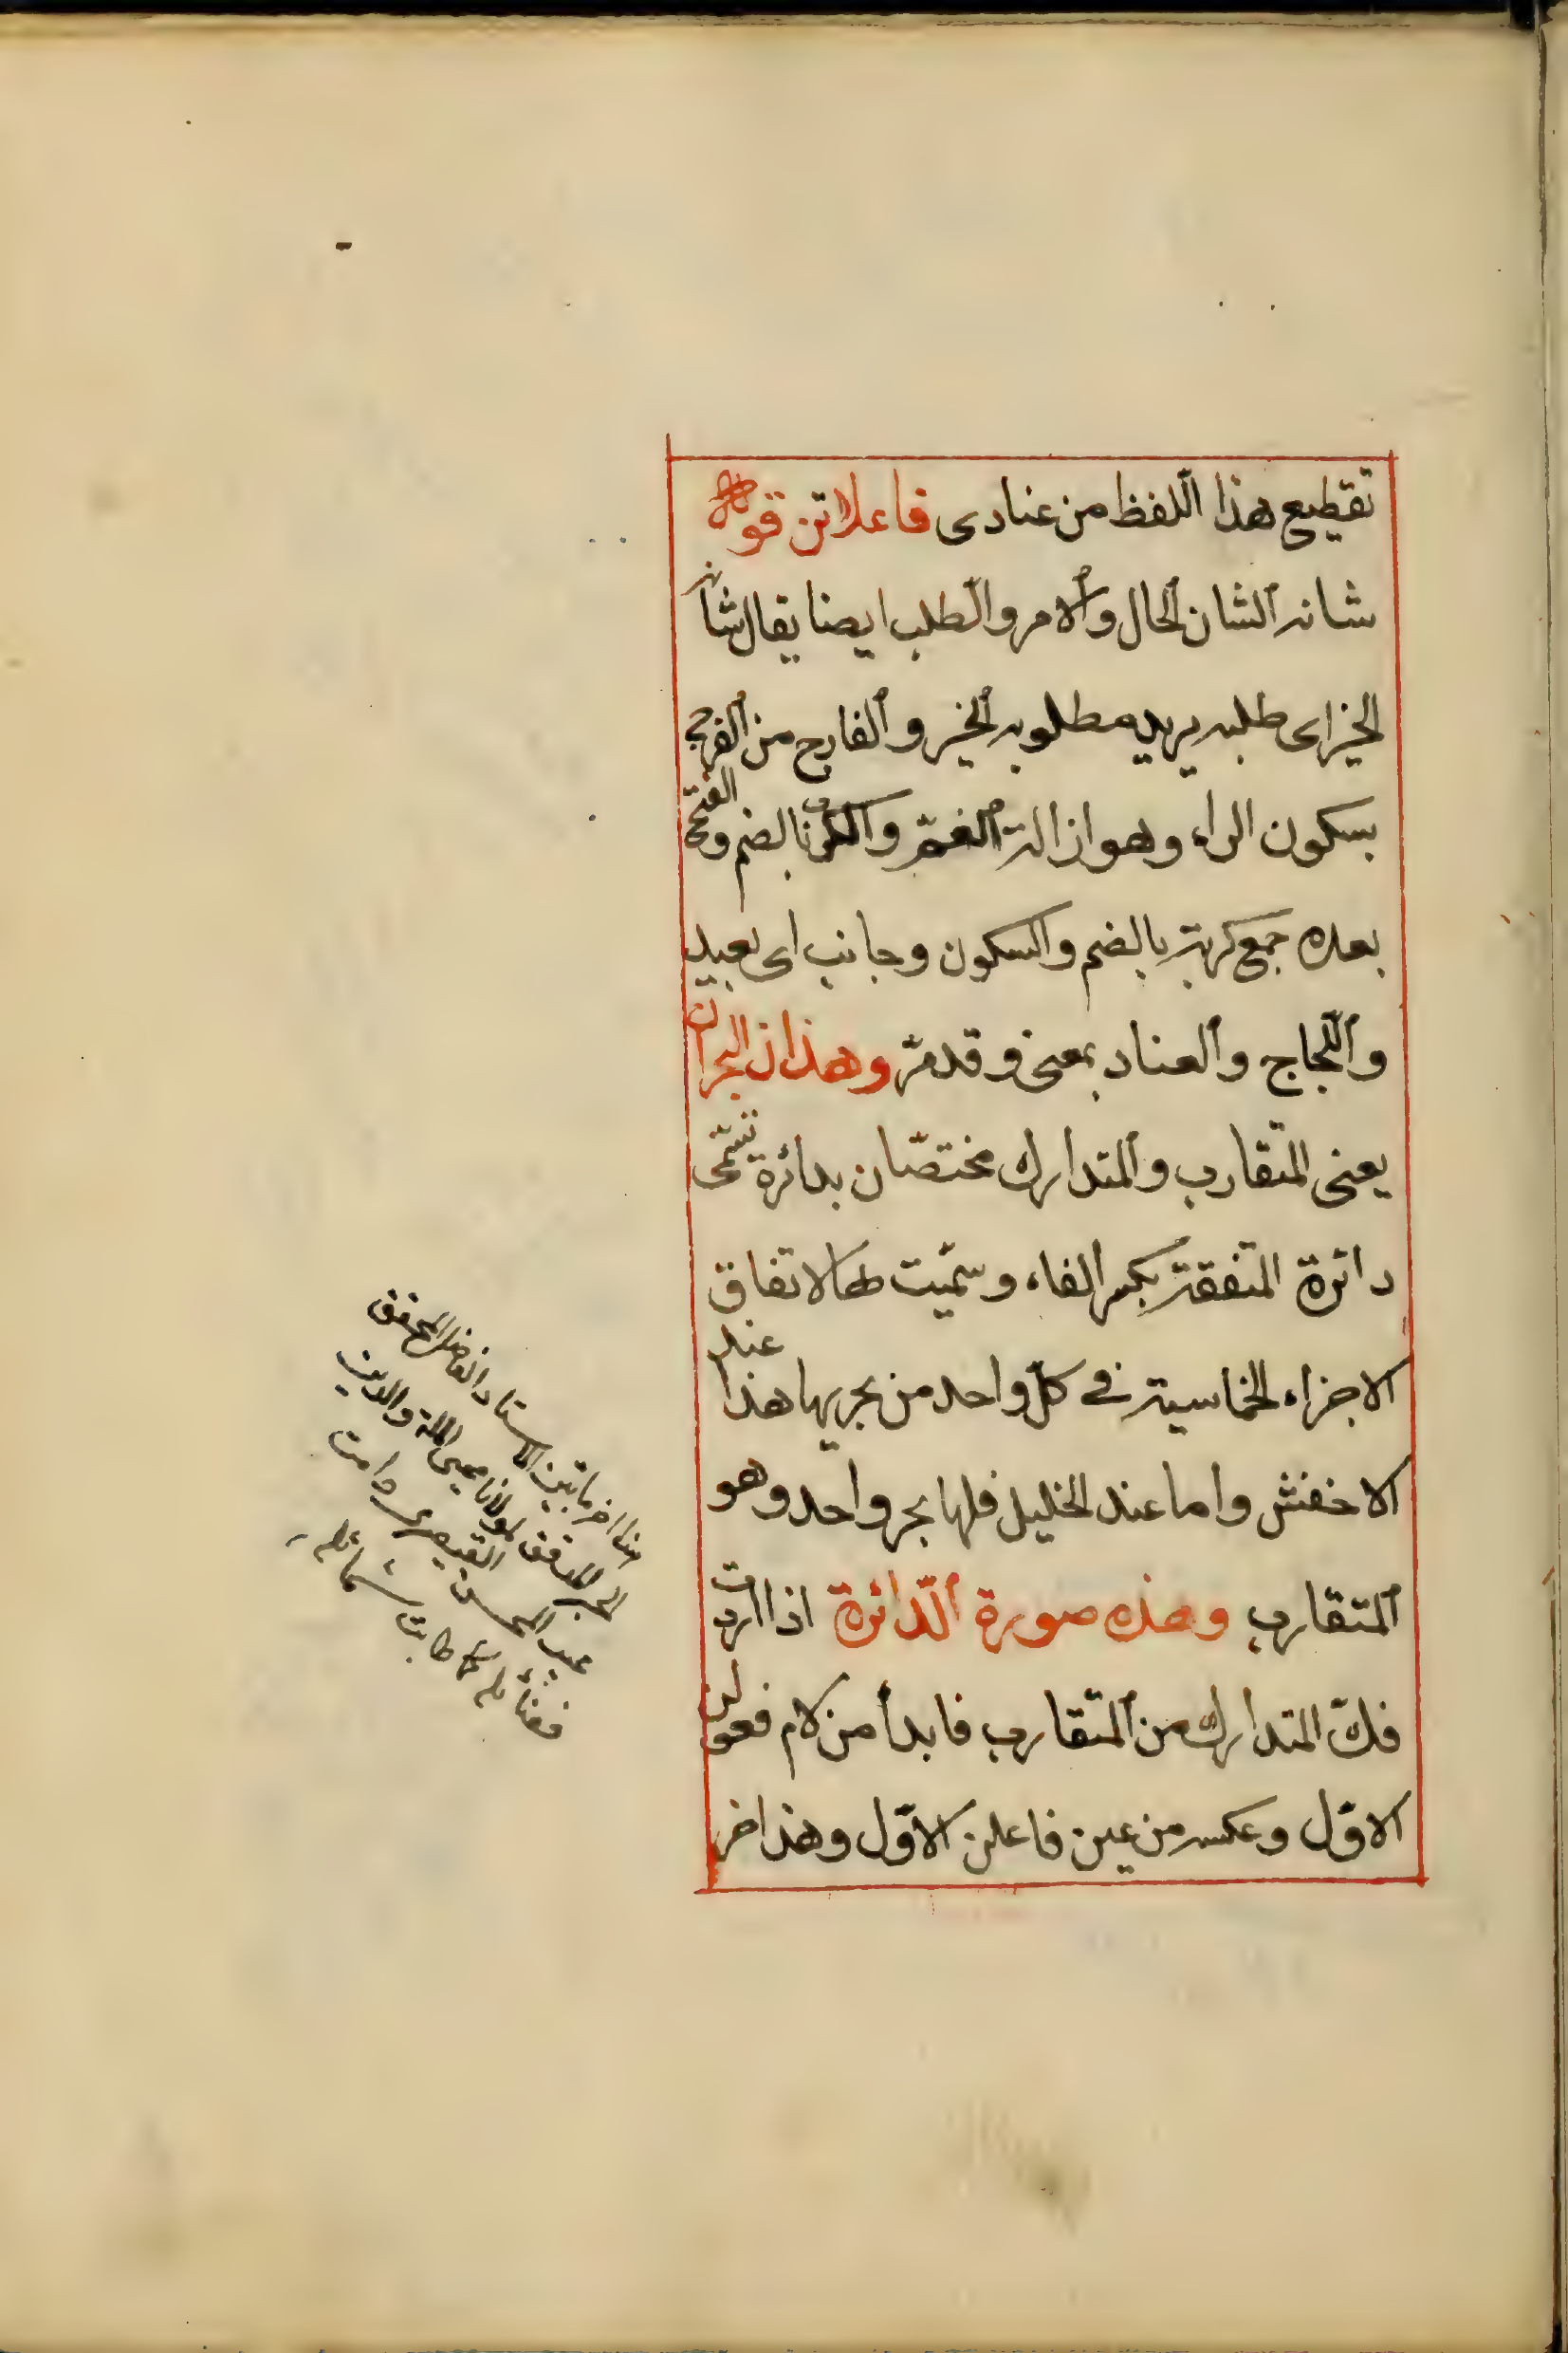 تقطيع هذا اللفظ من عنادى فاعلاتن قوله
شانه الشان الحال والامر والطلب ايضا يقال شانه
الخير اى طلبه يريد مطلوبه الخير والفارج من الفرج
بسكون الراء وهو ازالة الغم والكرب بالضم والفتح
بعده جمع كربة بالضم والسكون وجانب اى بعيد
واللجاج والعناد بمعنى وقد مر وهذان البحران
يعنى المتقارب والمتدارك مختصان بدائرة تسمى
دائرة المتفقة بكسر الفاء وسميت بها لاتفاق
الاجزاء الخماسية فى كل واحد من بحريها هذا عند
الاخفش واما عند الخليل فلها بحر واحد وهو
المتقارب وهذه صورة الدائرة اذا اردت
فك المتدارك من المتقارب فابدأ من لام فعولن
الاول وعكسه من عين فاعلن الاول وهذا اخر
هذا اخر ما الاستاد الفاضل المحقق
المدقق مولانا محيى الملة والدين
عبد المحسن القيصرى دامت
فضائله كما طابت شمائله